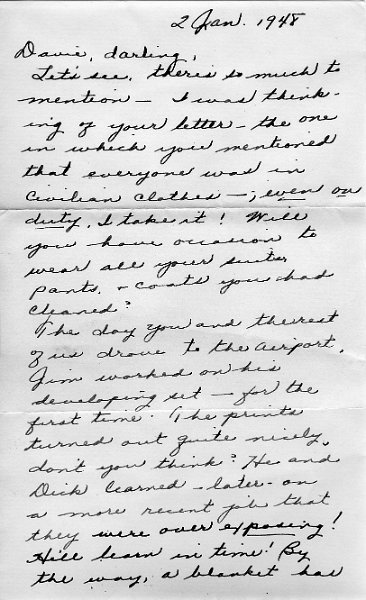 2 Jan. 1948
Davie, darling,
Let's see, there's so much to
mention — I was think-
ing of your letter — the one
in which you mentioned
that everyone was in
civilian clothes —, even on
duty, I take it! Will
you have occasion to
wear all your suits,
pants, & coats you had
cleaned?
The day you and the rest
of us drove to the airport,
Jim worked on his
developing set — for the
first time. The prints
turned out quite nicely,
don't you think? He and
Dick learned - later - on
a more recent job that
they were over exposing!
He'll learn in time! By
the way, a blanket has